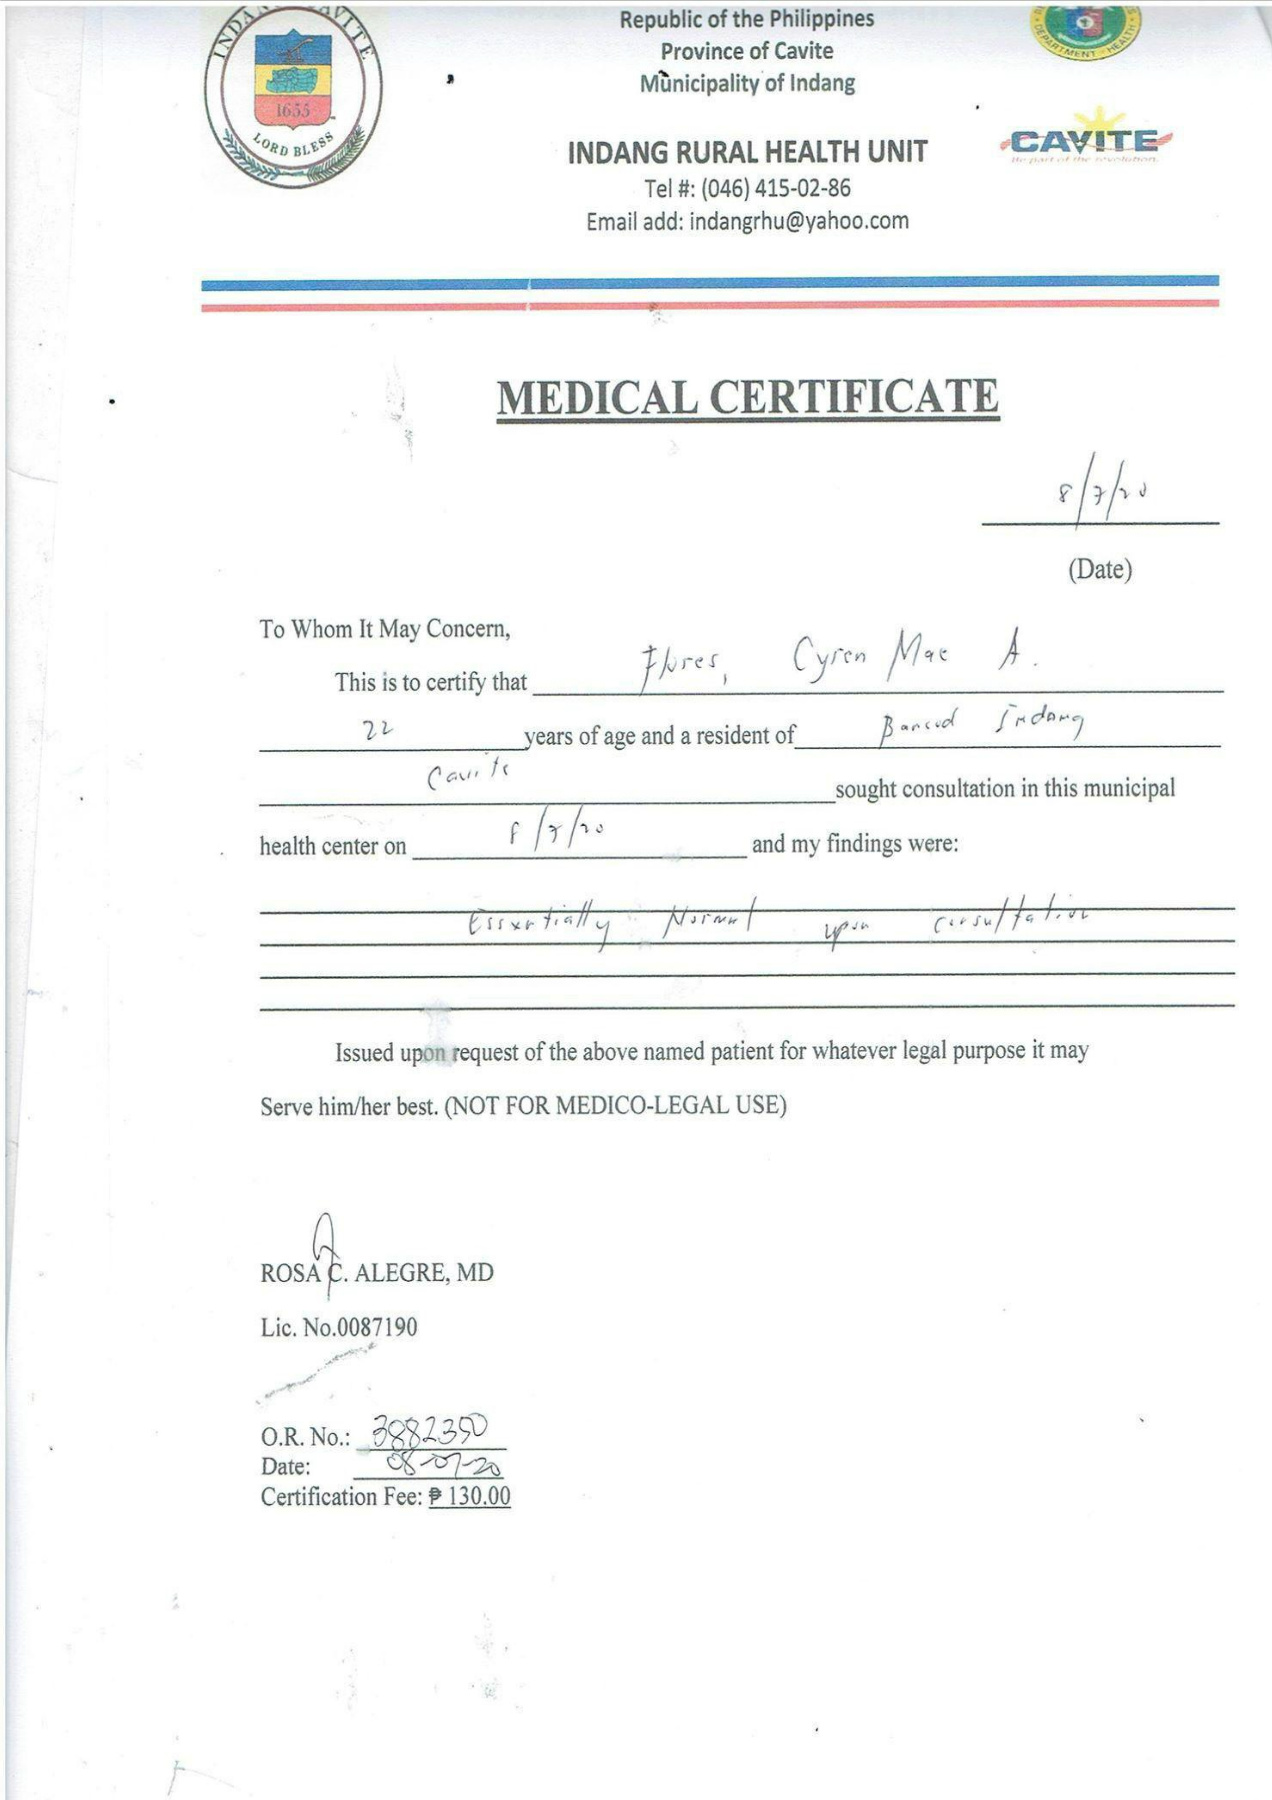 INDANG CAVITE
1655
LORD BLESS
Republic of the Philippines
Province of Cavite
Municipality of Indang
DEPARTMENT HEALTH
CAVITE
Be part of the revolution.
INDANG RURAL HEALTH UNIT
Tel #: (046) 415-02-86
Email add: indangrhu@yahoo.com
MEDICAL CERTIFICATE
8/7/20
(Date)
To Whom It May Concern,
This is to certify that Flores, Cyren Mae A.
22 years of age and a resident of Bancod Indang
Cavite sought consultation in this municipal
health center on 8/7/20 and my findings were:
Essentially Normal upon consultation
Issued upon request of the above named patient for whatever legal purpose it may
Serve him/her best. (NOT FOR MEDICO-LEGAL USE)
ROSA C. ALEGRE, MD
Lic. No.0087190
O.R. No.: 3882350
Date: 08-07-20
Certification Fee: ₱ 130.00